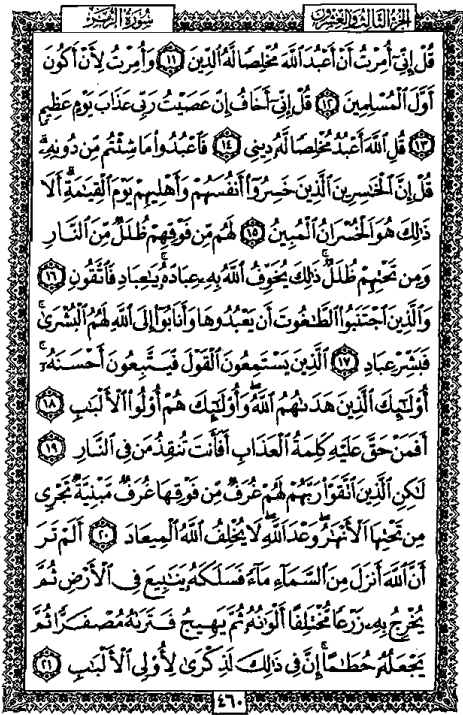 الجزء الثالث والعشرون
سورة الزمر
قُلْ إِنِّيٓ أُمِرْتُ أَنْ أَعْبُدَ ٱللَّهَ مُخْلِصًا لَّهُ ٱلدِّينَ ١١ وَأُمِرْتُ لِأَنْ أَكُونَ
أَوَّلَ ٱلْمُسْلِمِينَ ١٢ قُلْ إِنِّيٓ أَخَافُ إِنْ عَصَيْتُ رَبِّي عَذَابَ يَوْمٍ عَظِيمٍ
١٣ قُلِ ٱللَّهَ أَعْبُدُ مُخْلِصًا لَّهُۥ دِينِي ١٤ فَٱعْبُدُوا۟ مَا شِئْتُم مِّن دُونِهِۦۗ
قُلْ إِنَّ ٱلْخَٰسِرِينَ ٱلَّذِينَ خَسِرُوٓا۟ أَنفُسَهُمْ وَأَهْلِيهِمْ يَوْمَ ٱلْقِيَٰمَةِۗ أَلَا
ذَٰلِكَ هُوَ ٱلْخُسْرَانُ ٱلْمُبِينُ ١٥ لَهُم مِّن فَوْقِهِمْ ظُلَلٌ مِّنَ ٱلنَّارِ
وَمِن تَحْتِهِمْ ظُلَلٌۚ ذَٰلِكَ يُخَوِّفُ ٱللَّهُ بِهِۦ عِبَادَهُۥۚ يَٰعِبَادِ فَٱتَّقُونِ ١٦
وَٱلَّذِينَ ٱجْتَنَبُوا۟ ٱلطَّٰغُوتَ أَن يَعْبُدُوهَا وَأَنَابُوٓا۟ إِلَى ٱللَّهِ لَهُمُ ٱلْبُشْرَىٰۚ
فَبَشِّرْ عِبَادِ ١٧ ٱلَّذِينَ يَسْتَمِعُونَ ٱلْقَوْلَ فَيَتَّبِعُونَ أَحْسَنَهُۥٓۚ
أُو۟لَٰٓئِكَ ٱلَّذِينَ هَدَىٰهُمُ ٱللَّهُۖ وَأُو۟لَٰٓئِكَ هُمْ أُو۟لُوا۟ ٱلْأَلْبَٰبِ ١٨
أَفَمَنْ حَقَّ عَلَيْهِ كَلِمَةُ ٱلْعَذَابِ أَفَأَنتَ تُنقِذُ مَن فِي ٱلنَّارِ ١٩
لَٰكِنِ ٱلَّذِينَ ٱتَّقَوْا۟ رَبَّهُمْ لَهُمْ غُرَفٌ مِّن فَوْقِهَا غُرَفٌ مَّبْنِيَّةٌ تَجْرِي
مِن تَحْتِهَا ٱلْأَنْهَٰرُۖ وَعْدَ ٱللَّهِۖ لَا يُخْلِفُ ٱللَّهُ ٱلْمِيعَادَ ٢٠ أَلَمْ تَرَ
أَنَّ ٱللَّهَ أَنزَلَ مِنَ ٱلسَّمَآءِ مَآءً فَسَلَكَهُۥ يَنَٰبِيعَ فِي ٱلْأَرْضِ ثُمَّ
يُخْرِجُ بِهِۦ زَرْعًا مُّخْتَلِفًا أَلْوَٰنُهُۥ ثُمَّ يَهِيجُ فَتَرَىٰهُ مُصْفَرًّا ثُمَّ
يَجْعَلُهُۥ حُطَٰمًاۚ إِنَّ فِي ذَٰلِكَ لَذِكْرَىٰ لِأُو۟لِي ٱلْأَلْبَٰبِ ٢١
٤٦٠